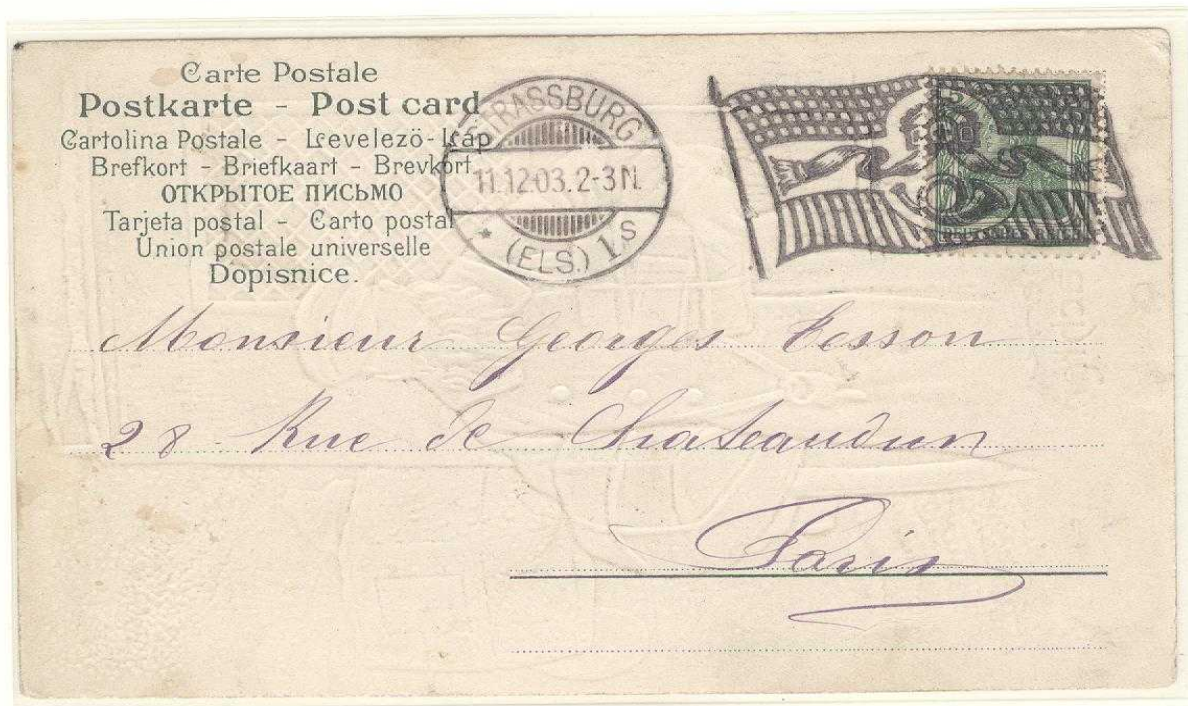 Carte Postale
Postkarte - Post card
Cartolina Postale - Levelezö-Láp
Brefkort - Briefkaart - Brevkort
ОТКРЫТОЕ ПИСЬМО
Tarjeta postal - Carto postal
Union postale universelle
Dopisnice.
STRASSBURG
11.12.03.2-3N.
* (ELS.) 1.s
5
DEUTSCHES REICH
Monsieur Georges
28 Rue de Chateaudun
Paris